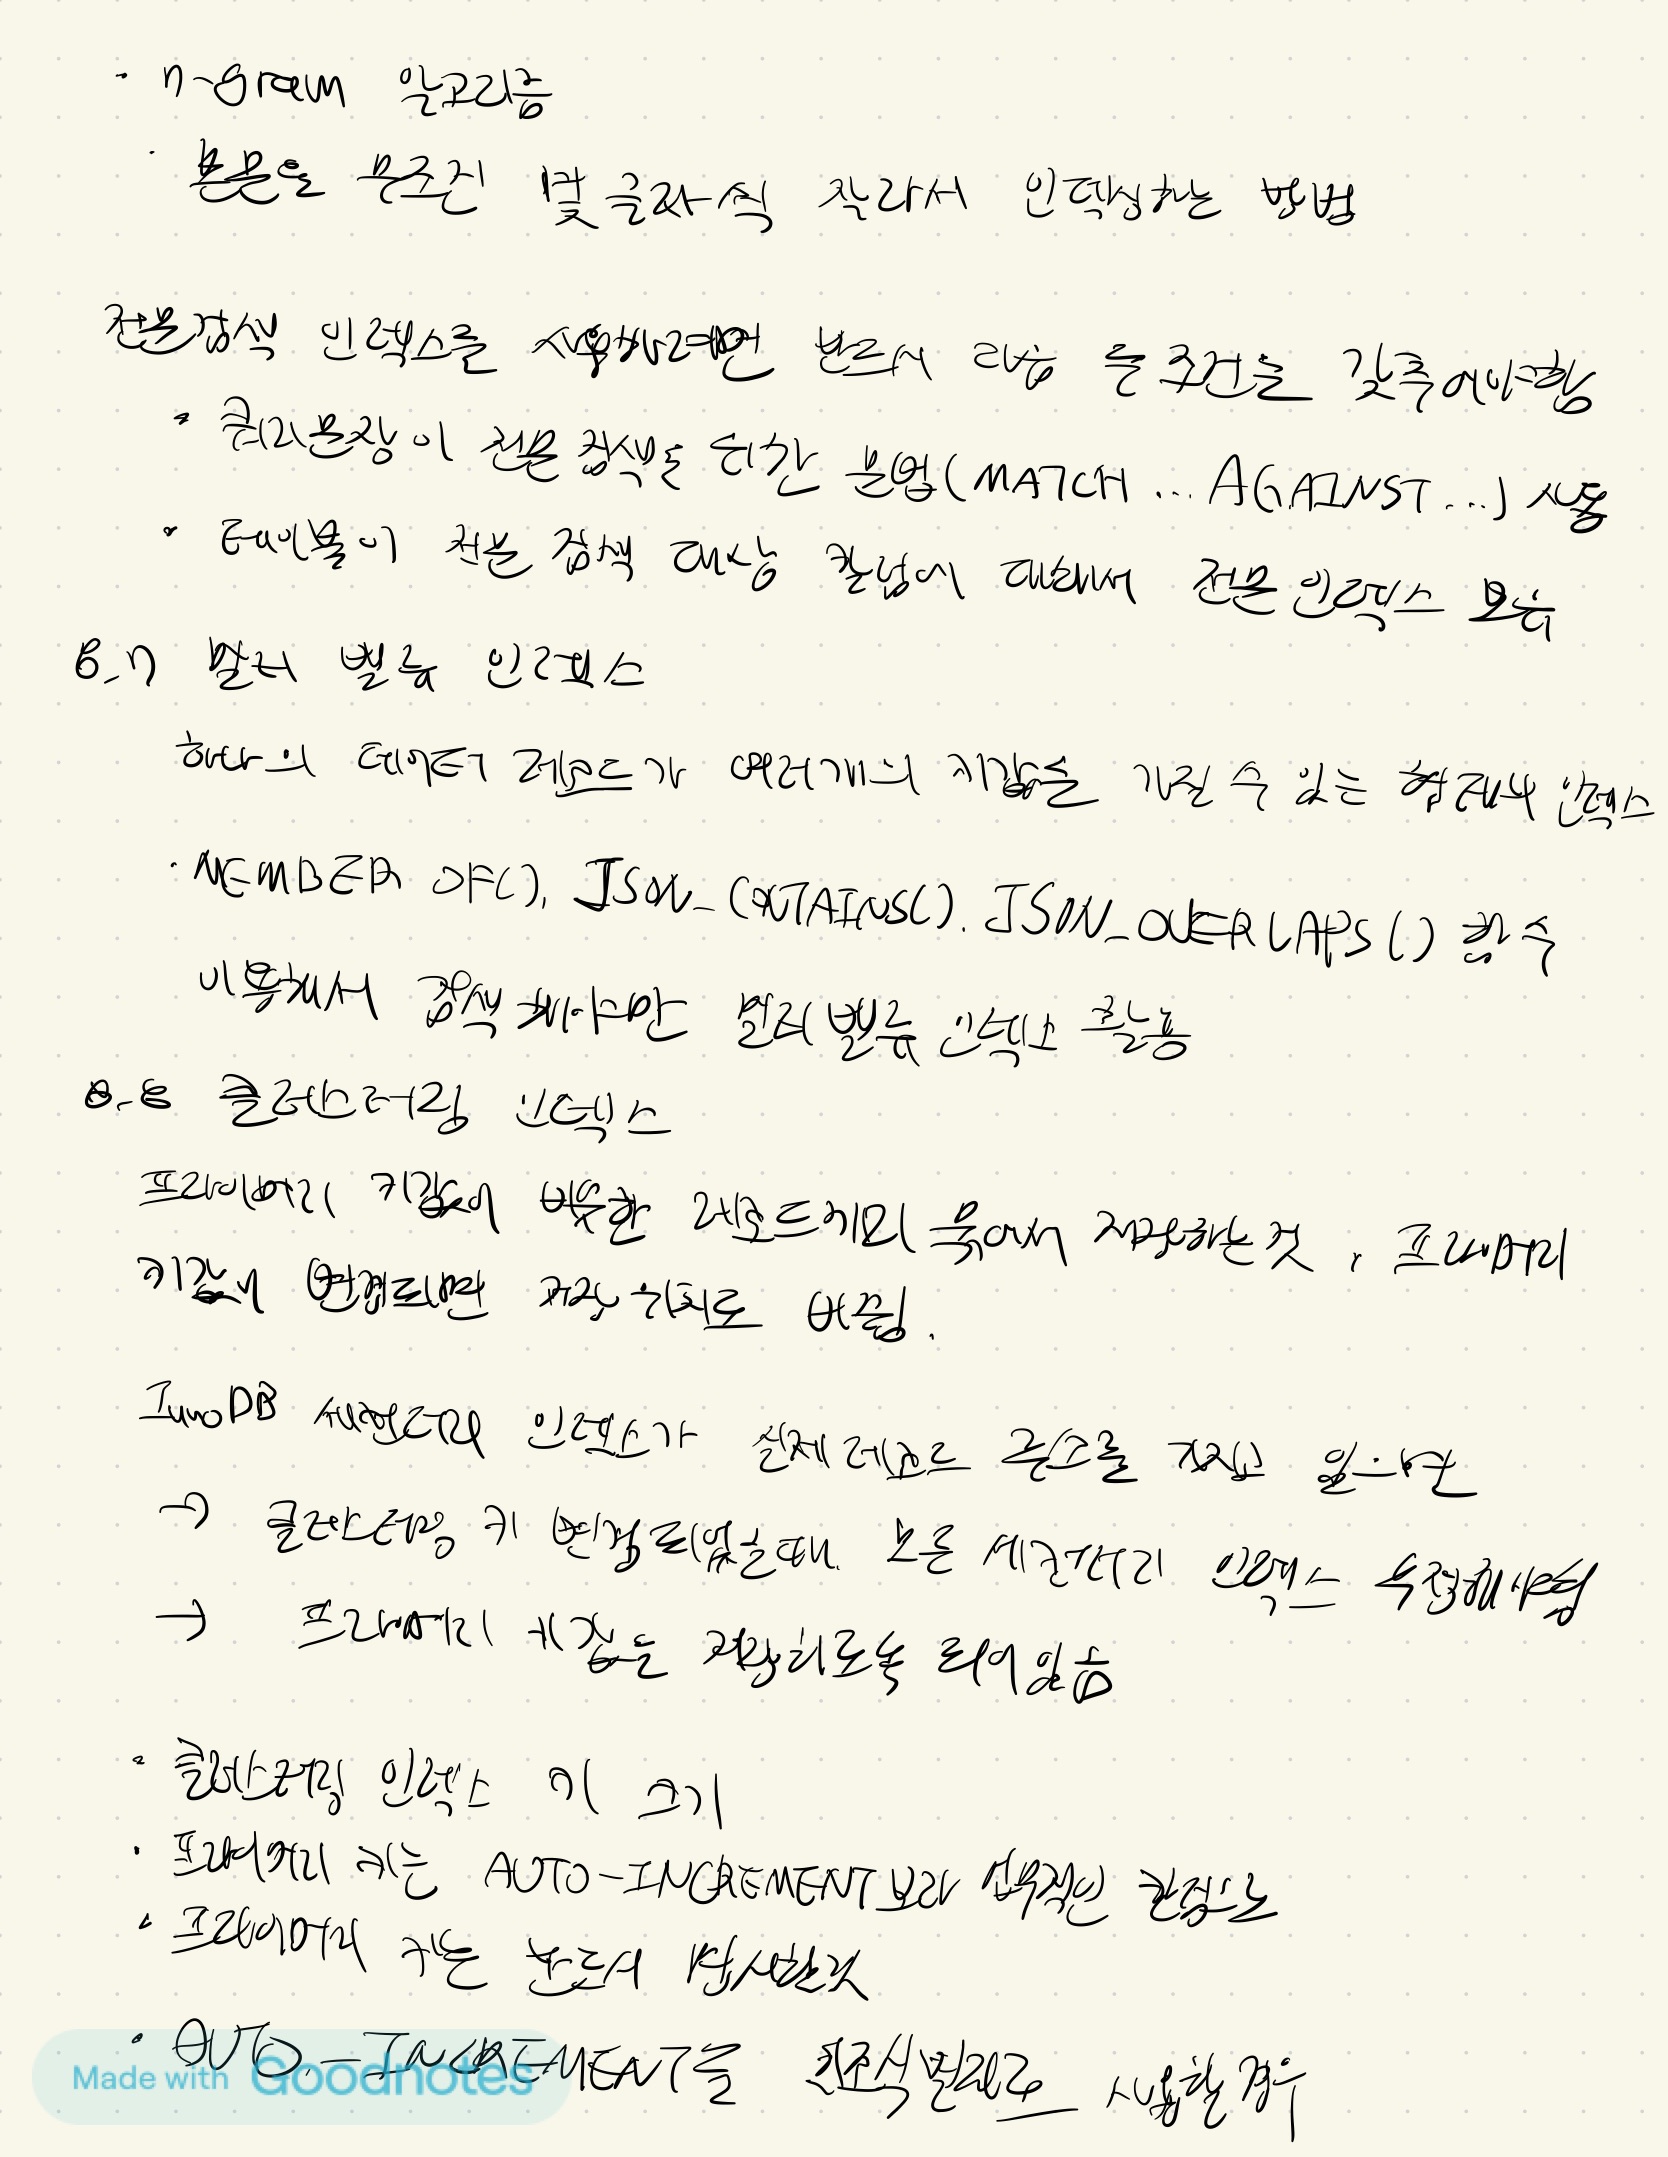 · n-gram 알고리즘
· 본문을 무조건 몇 글자씩 잘라서 인덱싱하는 방법
전문검색 인덱스를 사용하려면 반드시 다음 두 조건을 갖추어야함
· 쿼리문장이 전문검색을 위한 문법(MATCH ... AGAINST ...) 사용
· 테이블이 전문 검색 대상 칼럼에 대해서 전문인덱스 보유
8.7 멀티 밸류 인덱스
하나의 데이터 레코드가 여러개의 키값을 가질 수 있는 형태의 인덱스
· MEMBER OF(), JSON_CONTAINS(), JSON_OVERLAPS() 함수
이용해서 검색해야만 멀티밸류 인덱스 활용
8.8 클러스터링 인덱스
프라이머리 키값이 비슷한 레코드끼리 묶어서 저장하는것, 프라이머리
키값이 변경되면 저장위치로 바뀜.
InnoDB 세컨더리 인덱스가 실제레코드 주소를 가지고 있으면
→ 클러스터링 키 변경되었을때. 모든 세컨더리 인덱스 수정해야함
→ 프라이머리 키값을 저장하도록 되어있음
· 클러스터링 인덱스 키 크기
· 프라이머리 키는 AUTO-INCREMENT보다 업무적인 칼럼으로
· 프라이머리 키는 반드시 명시할것
· AUTO-INCREMENT를 인조식별자로 사용할 경우
Made with Goodnotes